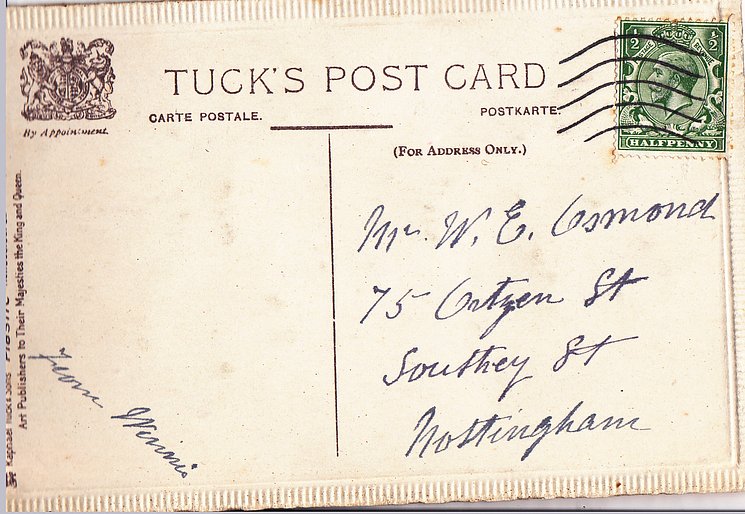 TUCK'S POST CARD
CARTE POSTALE. POSTKARTE.
By Appointment
(FOR ADDRESS ONLY.)
1/2 1/2
HALFPENNY
Mr. W. E. Osmond
75 St
Southey St
Nottingham
From Winnie
Raphael Tuck & Sons
Art Publishers to Their Majesties the King and Queen.